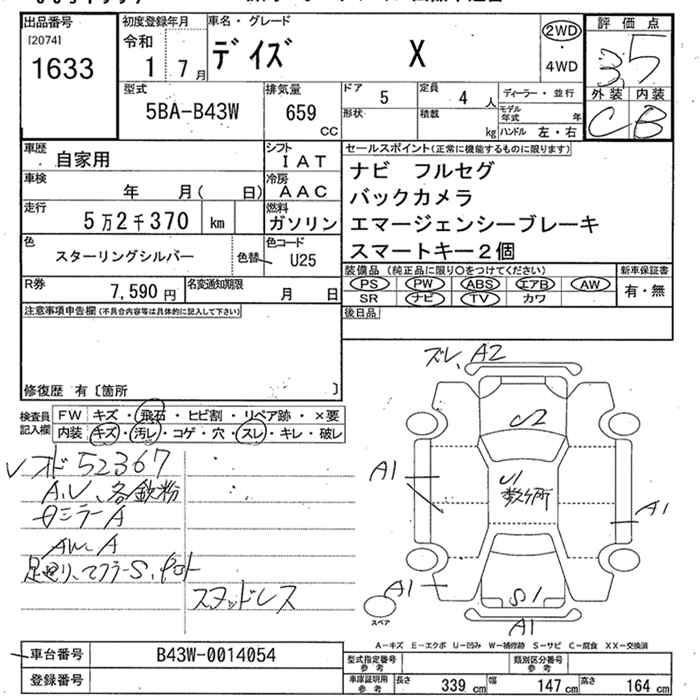 出品番号
[2074]
1633
初度登録年月
令和
1 7月
車名・グレード
デイズ X
2WD
4WD
評価点
3.5
外装 内装
C B
型式
5BA-B43W
排気量
659 CC
ドア 5
定員 4 人
形状
積載 kg
ディーラー・並行
モデル年式 年
ハンドル 左・右
車歴
自家用
シフト
IAT
車検
年 月( 日)
冷房
AAC
走行
5万2千370 km
燃料
ガソリン
色
スターリングシルバー
色替
色コード
U25
R券
7,590円
名変通知期限
月 日
セールスポイント(正常に機能するものに限ります)
ナビ フルセグ
バックカメラ
エマージェンシーブレーキ
スマートキー2個
装備品(純正品に限り○をつけてください)
PS PW ABS エアB AW
SR ナビ TV カワ
新車保証書
有・無
後日品
注意事項申告欄(不具合内容等は具体的に記入して下さい)
修復歴 有〔箇所 〕
検査員記入欄
FW キズ・飛石・ヒビ割・リペア跡・×要
内装 キズ・汚レ・コゲ・穴・スレ・キレ・破レ
レオド 52367
A.U、各鉄粉
タミラーA
AW-A
足廻り、マフラーS、
スタッドレス
ズレ、A2
U2
A1
U1
数ヶ所
A1
A1
S1
A1
スペア
A-キズ E-エクボ U-凹み W-補修跡 S-サビ C-腐食 XX-交換済
車台番号
B43W-0014054
登録番号
型式指定番号 参考
類別区分番号 参考
車庫証明用 参考
長さ 339 cm
幅 147 cm
高さ 164 cm